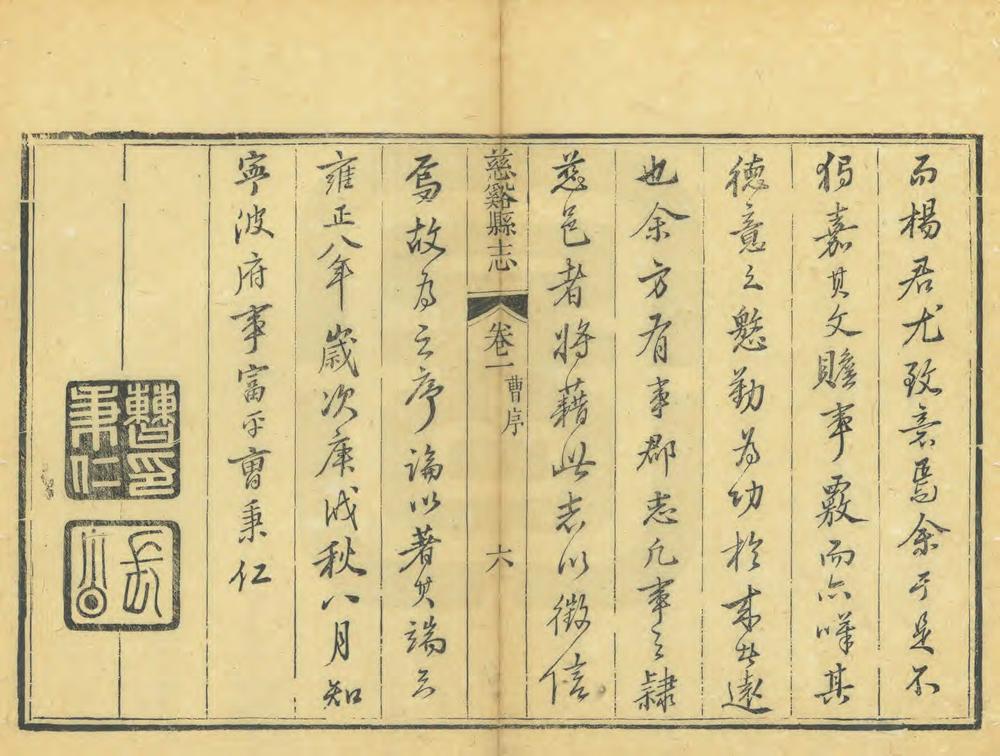 而楊君尤致意焉余于是不
獨嘉其文贍事覈而亦嘆其
德意之懃勤為功於來者遠
也余方有事郡志凡事之隸
慈邑者將藉此志以徵信
慈谿縣志 卷一 曹序 六
焉故為之序論以著其端云
雍正八年歲次庚戌秋八月知
寧波府事富平曹秉仁
曹秉仁印
長公